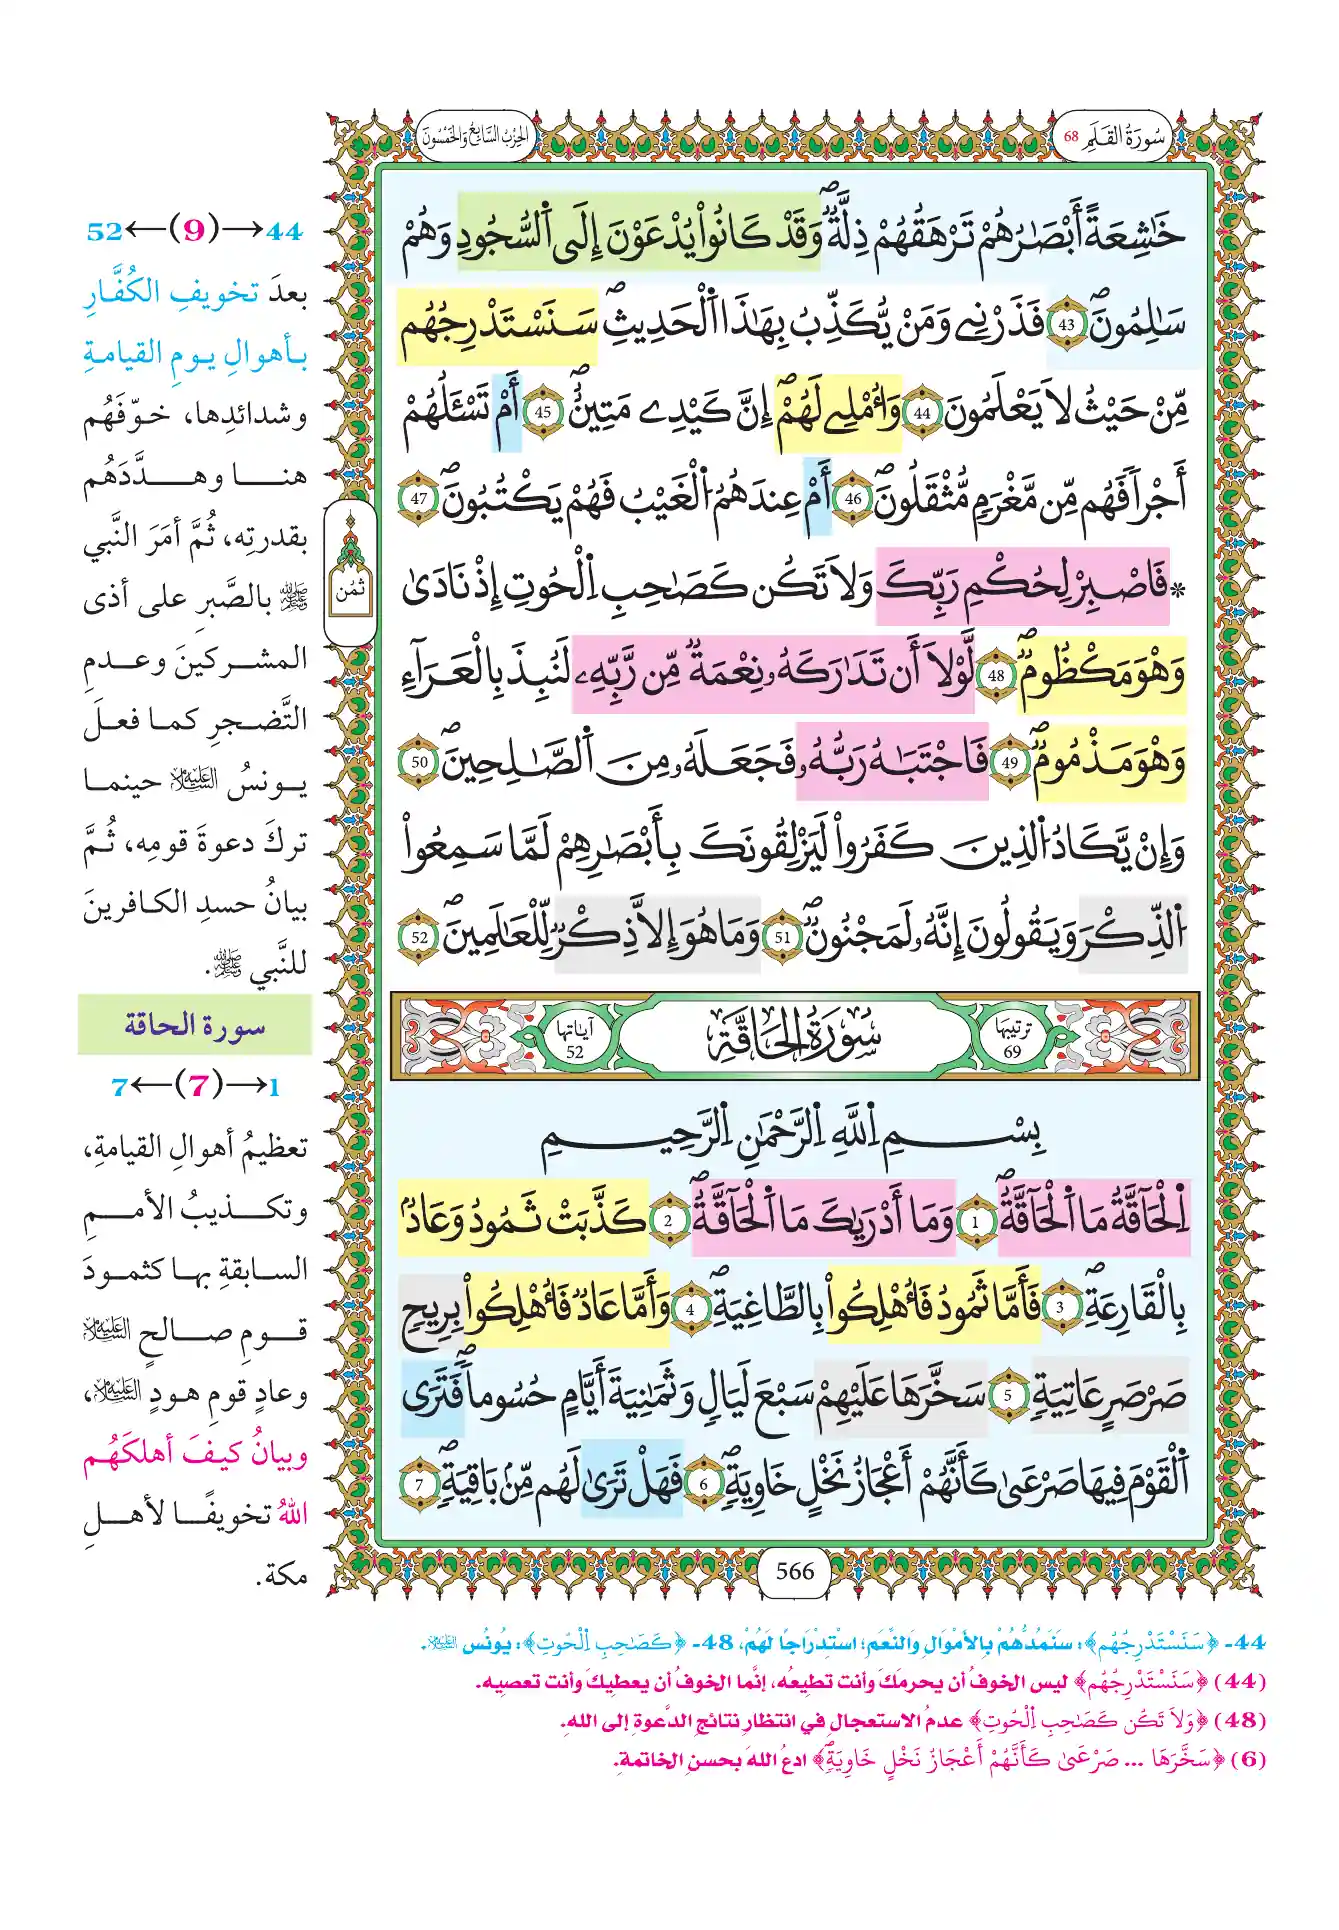 سُورَةُ القَلَمِ 68
الحِزْبُ السَّابِعُ وَالخَمْسُونَ
خَٰشِعَةً أَبْصَٰرُهُمْ تَرْهَقُهُمْ ذِلَّةٞ وَقَدْ كَانُواْ يُدْعَوْنَ إِلَى اَ۬لسُّجُودِ وَهُمْ
سَٰلِمُونَۖ 43 فَذَرْنِے وَمَنْ يُّكَذِّبُ بِهَٰذَا اَ۬لْحَدِيثِۖ سَنَسْتَدْرِجُهُم
مِّنْ حَيْثُ لَا يَعْلَمُونَ 44 وَأُمْلِے لَهُمْۖ إِنَّ كَيْدِے مَتِينٌۖ 45 أَمْ تَسْـَٔلُهُمْ
أَجْراٗ فَهُم مِّن مَّغْرَمٖ مُّثْقَلُونَۖ 46 أَمْ عِندَهُمُ اُ۬لْغَيْبُ فَهُمْ يَكْتُبُونَۖ 47
* فَاصْبِرْ لِحُكْمِ رَبِّكَ وَلَا تَكُن كَصَٰحِبِ اِ۬لْحُوتِ إِذْ نَادَىٰ
وَهْوَ مَكْظُومٞۖ 48 لَّوْلَا أَن تَدَٰرَكَهُۥ نِعْمَةٞ مِّن رَّبِّهِۦ لَنُبِذَ بِالْعَرَآءِ
وَهْوَ مَذْمُومٞۖ 49 فَاجْتَبَٰهُ رَبُّهُۥ فَجَعَلَهُۥ مِنَ اَ۬لصَّٰلِحِينَۖ 50
وَإِنْ يَّكَادُ اُ۬لذِينَ كَفَرُواْ لَيَزْلِقُونَكَ بِأَبْصَٰرِهِمْ لَمَّا سَمِعُواْ
اُ۬لذِّكْرَ وَيَقُولُونَ إِنَّهُۥ لَمَجْنُونٞۖ 51 وَمَا هُوَ إِلَّا ذِكْرٞ لِّلْعَٰلَمِينَۖ 52
ترتيبها 69 سُورَةُ الحَاقَّةِ آياتها 52
بِسْمِ اِ۬للَّهِ اِ۬لرَّحْمَٰنِ اِ۬لرَّحِيمِ
اِ۬لْحَآقَّةُ مَا اَ۬لْحَآقَّةُۖ 1 وَمَا أَدْرَىٰكَ مَا اَ۬لْحَآقَّةُۖ 2 كَذَّبَتْ ثَمُودُ وَعَادُۢ
بِالْقَارِعَةِۖ 3 فَأَمَّا ثَمُودُ فَأُهْلِكُواْ بِالطَّاغِيَةِۖ 4 وَأَمَّا عَادٞ فَأُهْلِكُواْ بِرِيحٖ
صَرْصَرٍ عَاتِيَةٖ 5 سَخَّرَهَا عَلَيْهِمْ سَبْعَ لَيَالٖ وَثَمَٰنِيَةَ أَيَّامٍ حُسُوماٗۖ فَتَرَى
اَ۬لْقَوْمَ فِيهَا صَرْعَىٰ كَأَنَّهُمْ أَعْجَازُ نَخْلٍ خَاوِيَةٖۖ 6 فَهَلْ تَرَىٰ لَهُم مِّنۢ بَاقِيَةٖۖ 7
566
ثمن
44→(9)←52
بعدَ تخويفِ الكُفَّارِ
بأهوالِ يومِ القيامةِ
وشدائدِها، خوَّفَهُم
هنا وهدَّدَهُم
بقدرتِه، ثُمَّ أمَرَ النَّبي
ﷺ بالصَّبرِ على أذى
المشركينَ وعدمِ
التَّضجرِ كما فعلَ
يونسُ عليه السلام حينما
تركَ دعوةَ قومِه، ثُمَّ
بيانُ حسدِ الكافرينَ
للنَّبي ﷺ.
سورة الحاقة
1→(7)←7
تعظيمُ أهوالِ القيامةِ،
وتكذيبُ الأممِ
السابقةِ بها كثمودَ
قومِ صالحٍ عليه السلام
وعادٍ قومِ هودٍ عليه السلام،
وبيانُ كيفَ أهلكَهُم
اللهُ تخويفًا لأهلِ
مكة.
44- ﴿سَنَسْتَدْرِجُهُم﴾: سَنَمُدُّهُمْ بِالأَمْوَالِ وَالنِّعَمِ؛ اسْتِدْرَاجًا لَهُمْ، 48- ﴿كَصَٰحِبِ اِ۬لْحُوتِ﴾: يُونُس عليه السلام.
(44) ﴿سَنَسْتَدْرِجُهُم﴾ ليس الخوفُ أن يحرمكَ وأنت تطيعُه، إنَّما الخوفُ أن يعطيكَ وأنت تعصيه.
(48) ﴿وَلَا تَكُن كَصَٰحِبِ اِ۬لْحُوتِ﴾ عدمُ الاستعجالِ في انتظارِ نتائجِ الدَّعوةِ إلى اللهِ.
(6) ﴿سَخَّرَهَا ... صَرْعَىٰ كَأَنَّهُمْ أَعْجَازُ نَخْلٍ خَاوِيَةٖۖ﴾ ادعُ اللهَ بحسنِ الخاتمةِ.